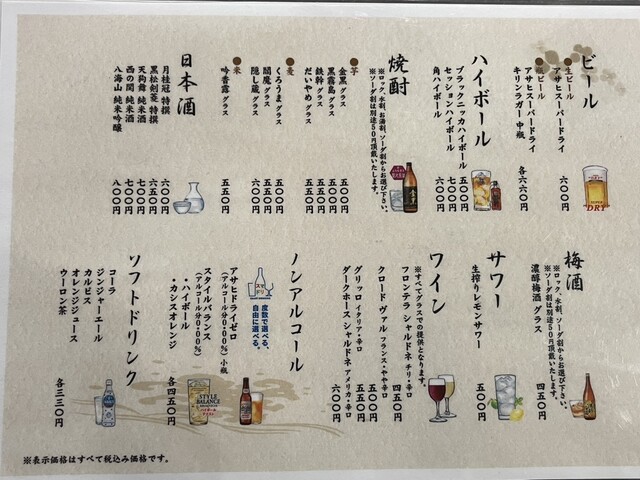 ビール
●生ビール
アサヒスーパードライ 六〇〇円
●瓶ビール
アサヒスーパードライ
キリンラガー 中瓶 各六六〇円
SUPER
DRY
ハイボール
ブラックニッカハイボール 五〇〇円
セッションハイボール 七〇〇円
角ハイボール 六〇〇円
焼酎
※ロック、水割、お湯割、ソーダ割からお選び下さい。
※ソーダ割は別途50円頂戴いたします。
●芋
金黒 グラス 五〇〇円
黒霧島 グラス 五〇〇円
鉄幹 グラス 五五〇円
だいやめ グラス 五五〇円
●麦
くろうま グラス 五〇〇円
閻魔 グラス 五五〇円
隠し蔵 グラス 六〇〇円
●米
吟香露 グラス 五五〇円
日本酒
月桂冠 特撰 六〇〇円
黒松剣菱 特撰 六五〇円
天狗舞 純米酒 七五〇円
西の関 純米酒 七〇〇円
八海山 純米吟醸 八〇〇円
梅酒
※ロック、水割、ソーダ割からお選び下さい。
※ソーダ割は別途50円頂戴いたします。
濃醇梅酒 グラス 四五〇円
サワー
生搾りレモンサワー 五〇〇円
ワイン
※すべてグラスでの提供となります。
フロンテラ シャルドネ チリ・辛口 四五〇円
クロード ヴァル フランス・やや辛口 五五〇円
グリッロ イタリア・辛口 五五〇円
ダークホース シャルドネ アメリカ・辛口 六〇〇円
ノンアルコール
スマドリ
度数で選べる、
自由に選べる。
アサヒドライゼロ
(アルコール分0.00%) 小瓶
スタイルバランス
(アルコール分0.00%)
・ハイボール
・カシスオレンジ 各四五〇円
STYLE
BALANCE
ソフトドリンク
コーラ
ジンジャーエール
カルピス
オレンジジュース
ウーロン茶 各三三〇円
※表示価格はすべて税込み価格です。